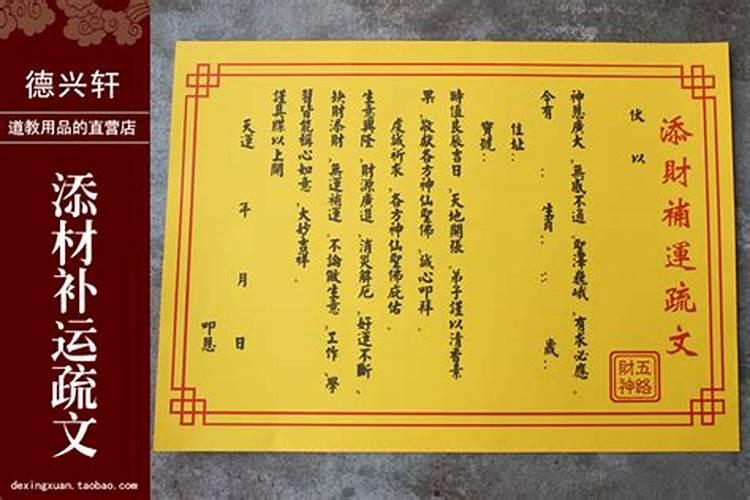 德兴轩
道教用品的直营店
添材补运疏文
dexingxuan.taobao.com
添財補運疏文
五路財神
伏以
神恩廣大，無感不通，聖澤巍峨，有求必應。
今有：生肖：：歲：
住址：
寶號：
時值良辰吉日，天地開張，弟子謹以清香素
果，敬獻各方神仙聖佛，誠心叩拜。
虔誠祈求，各方神仙聖佛庇佑
生意興隆，財源廣進，消災解厄，好運不斷、
缺財添財，無運補運，不論做生意，工作，學
習皆能稱心如意，大妙吉祥。
謹具牒以上聞
天運 年 月 日
叩恩